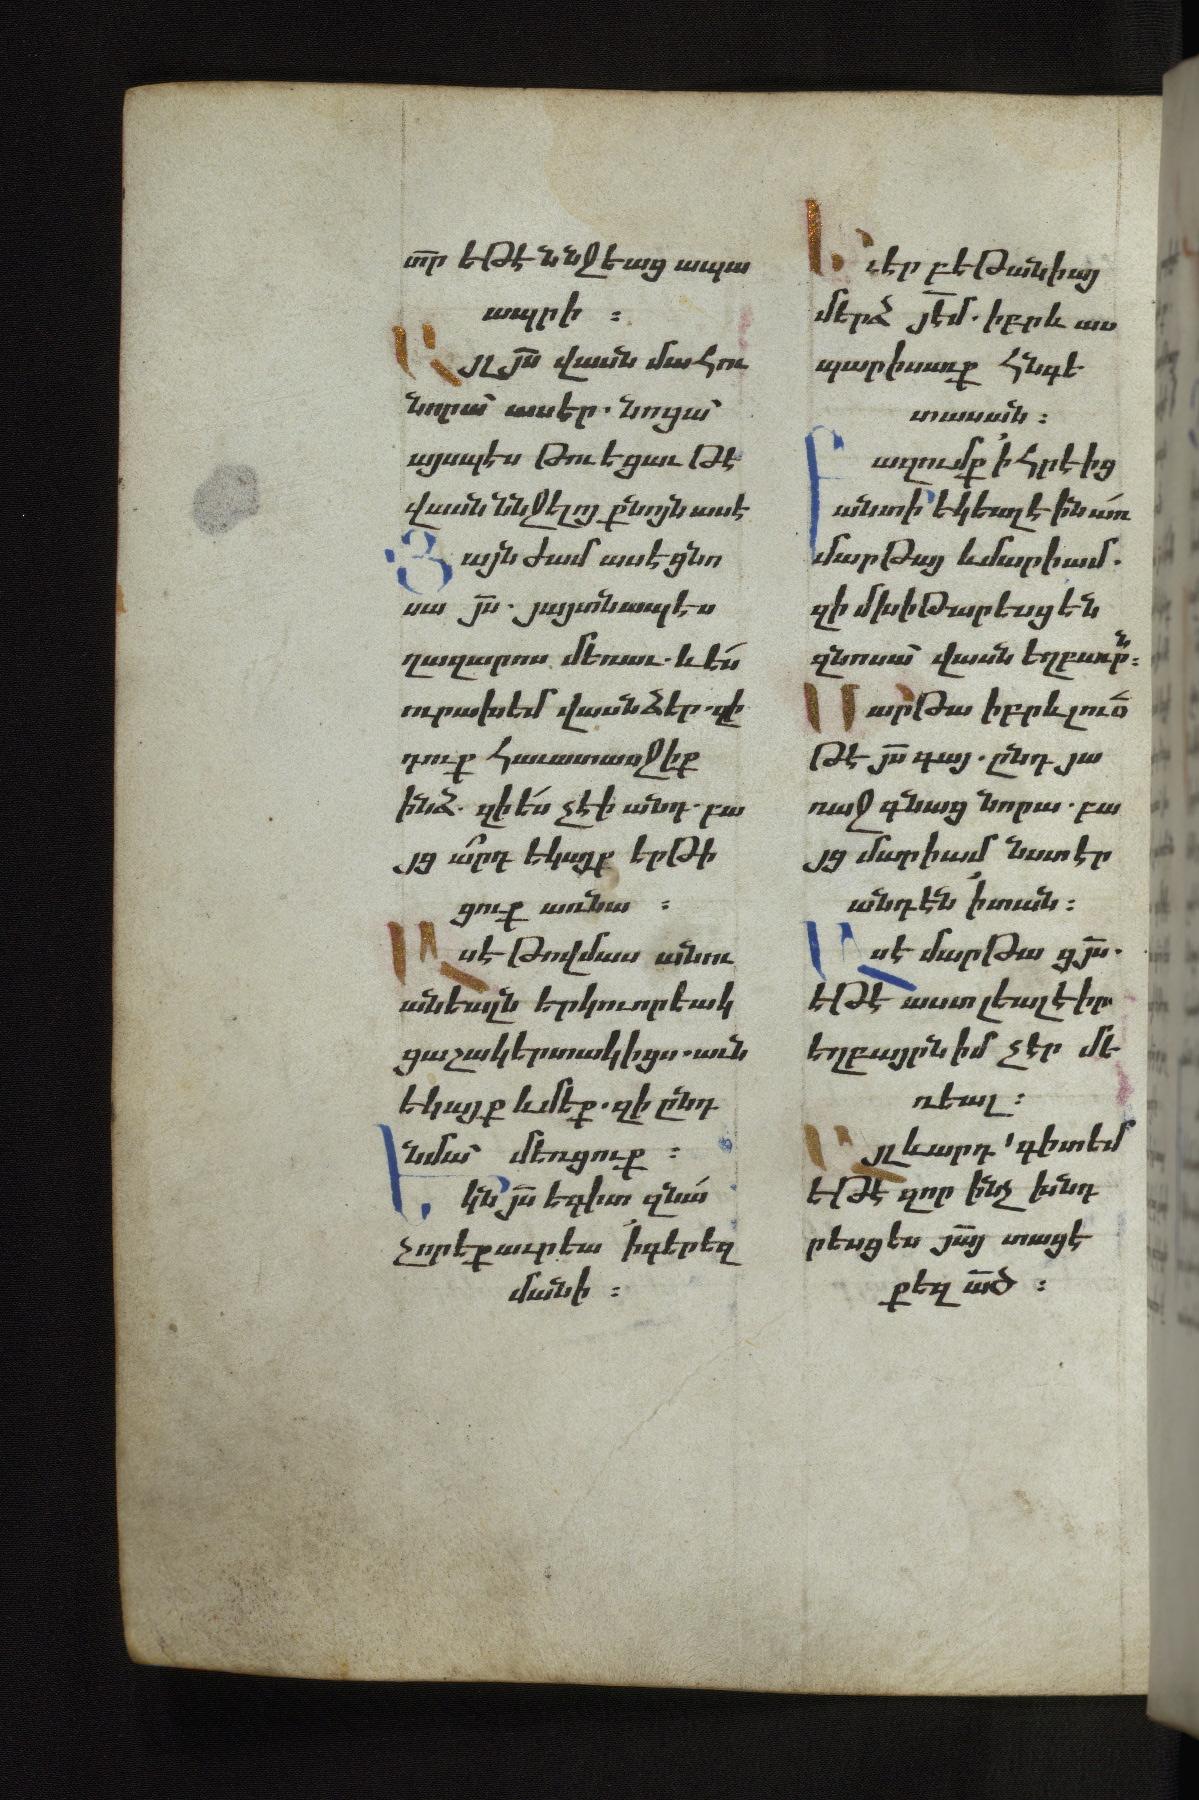 տր եթէ ննջեաց ապա
ապրի ։
Այլ յս վասն մահու
նորա ասէր. նոցա
այսպէս թուեցաւ թէ
վասն ննջելոյ քնոյն ասէ
Յայնժամ ասէ ցնո
սա յս. յայտնապէս
ղազարոս մեռաւ. և ես
ուրախեմ վասն ձեր. զի
դուք հաւատասջիք
ինձ. զի ես չէի անդ. բա
յց արդ եկայք երթի
ցուք առ նա ։
Ասէ թովմաս անու
անեալն երկուորեակ
ցաշակերտակիցս. աւն
եկայք և մեք. զի ընդ
նմա մեռցուք ։
Եկն յս եգիտ զնա
չորեքաւրեա ի գերեզ
մանի ։
Եւ էր բեթանիայ
մերձ յէմ. իբրև աս
պարիսաւք հնգե
տասան ։
Բազումք ի հրէից
անտի եկեալ էին առ
մարթայ և մարիամ.
զի մխիթարեսցեն
զնոսա վասն եղբաւրն ։
Մարթա իբրև լուաւ
թէ յս գայ. ընդ յա
ռաջ գնաց նորա. բա
յց մարիամ նստէր
անդէն ի տան ։
Ասէ մարթա ցյս.
եթէ աստ լեալ էիր
եղբայրն իմ չէր մե
ռեալ ։
Այլ և արդ գիտեմ
եթէ զոր ինչ խնդ
րեսցես յայ տացէ
քեզ ած ։